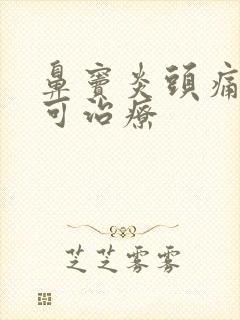 鼻竇炎頭痛
可治療
芝芝雾雾